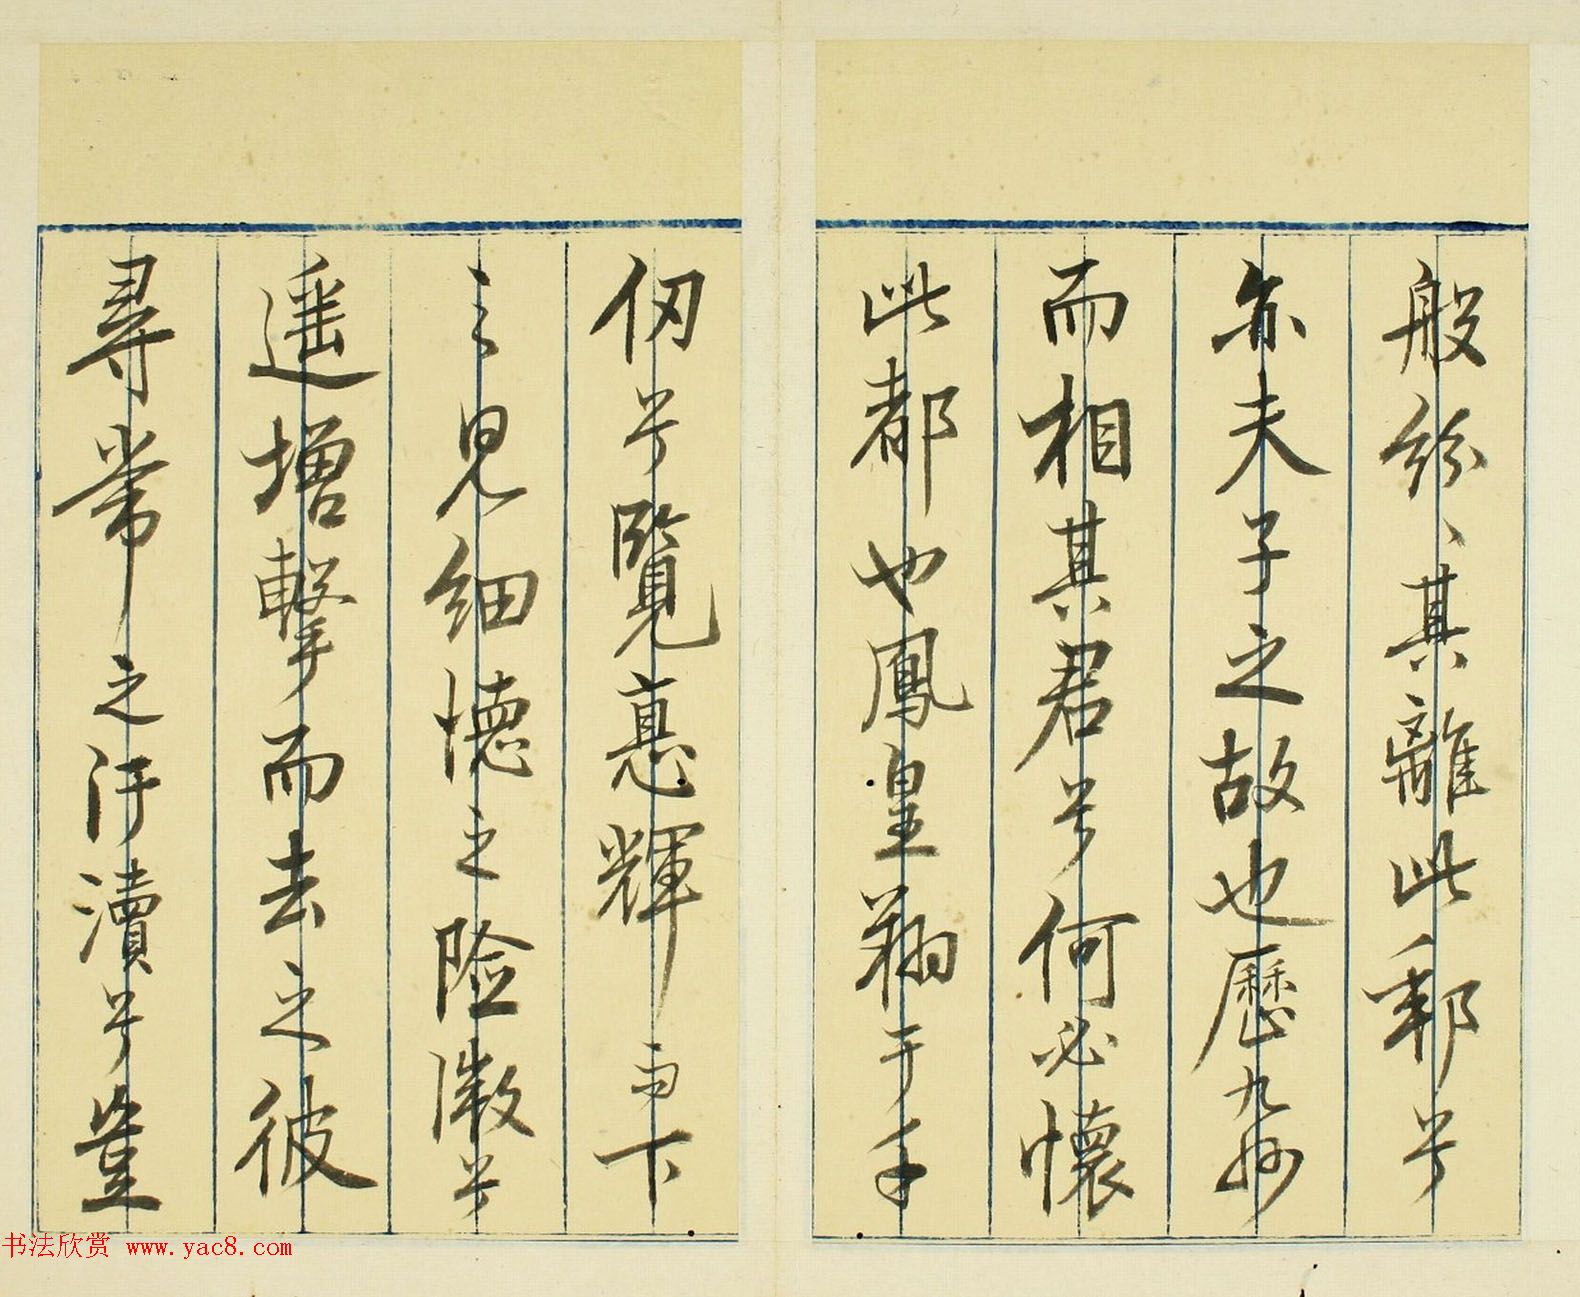 般紛、其離此郵兮
亦夫子之故也歷九州
而相其君兮何必懷
此都也鳳皇翔于千
仞兮覽惪輝而下
之見細德之險微兮
遥增擊而去之彼
尋常之汙瀆兮豈
书法欣赏 www.yac8.com